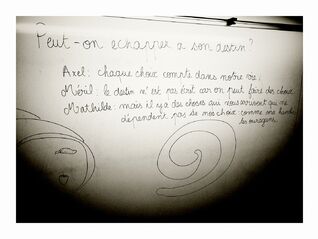 Peut-on echapper a son destin?
Axel: chaque choix compte dans notre vie.
le destin n'est pas écrit car on peut faire des choix
Mathilde: mais il y a des choses qui nous arrivent qui ne
dépendent pas de nos choix comme
les ouragans.